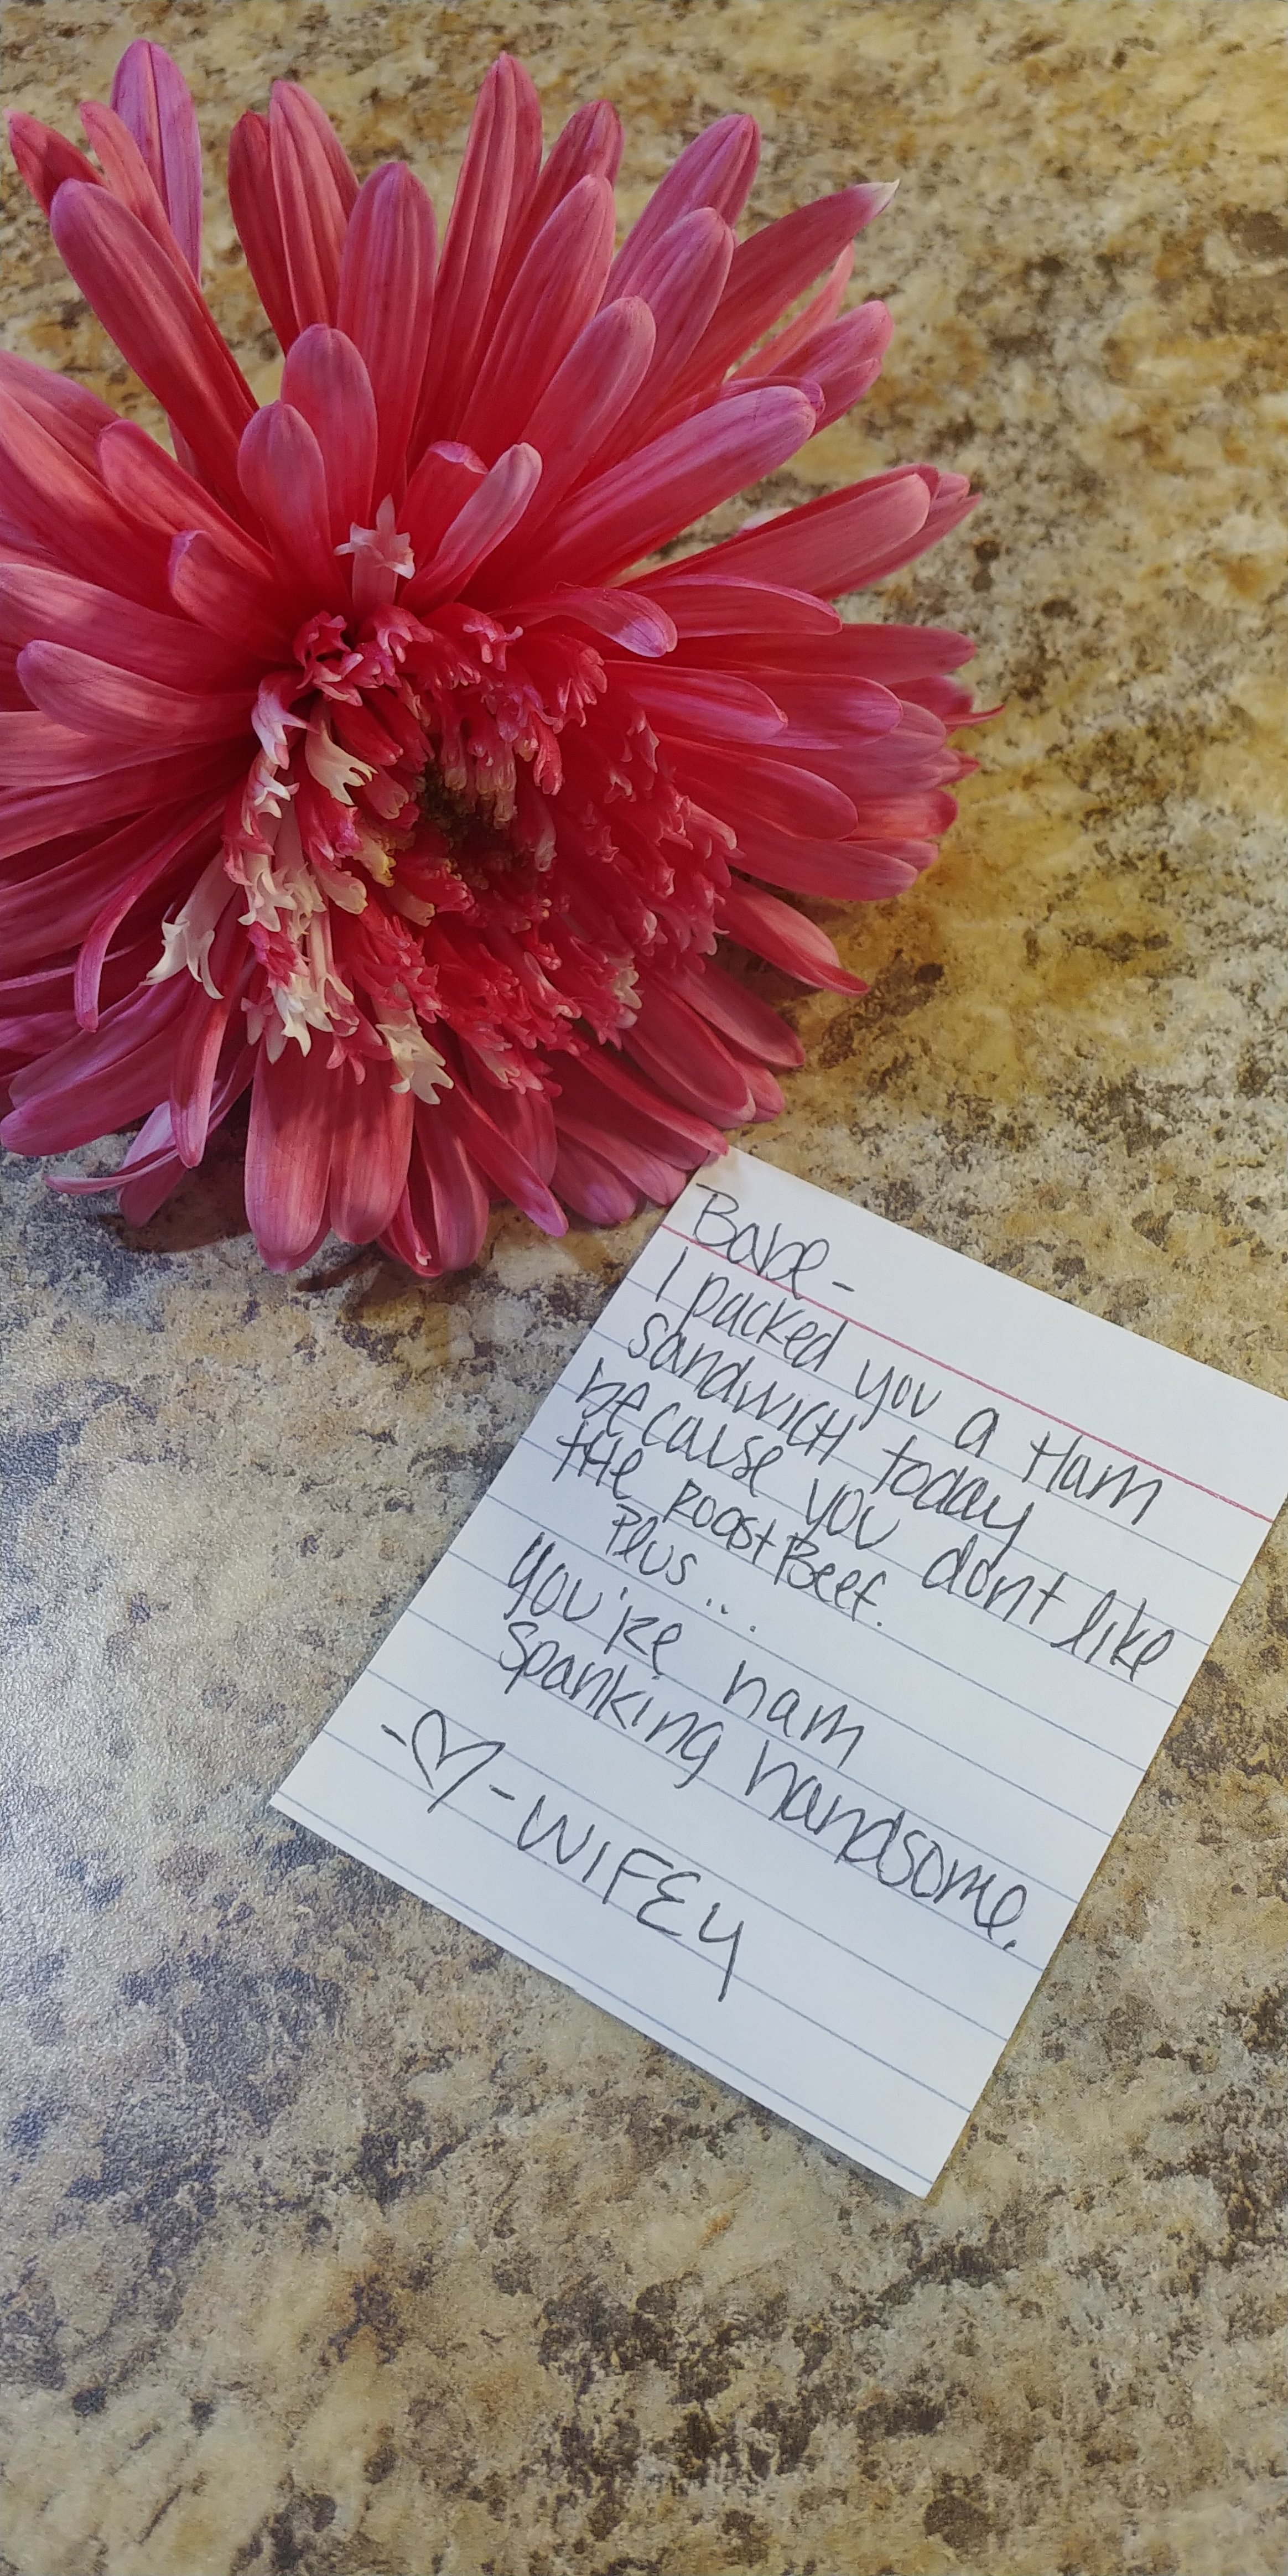 Babe-
I packed you a Ham
sandwicH today
because you dont like
tHe RoastBeef.
Plus...
You're ham
spanking handsome.
-♡-WIFEy